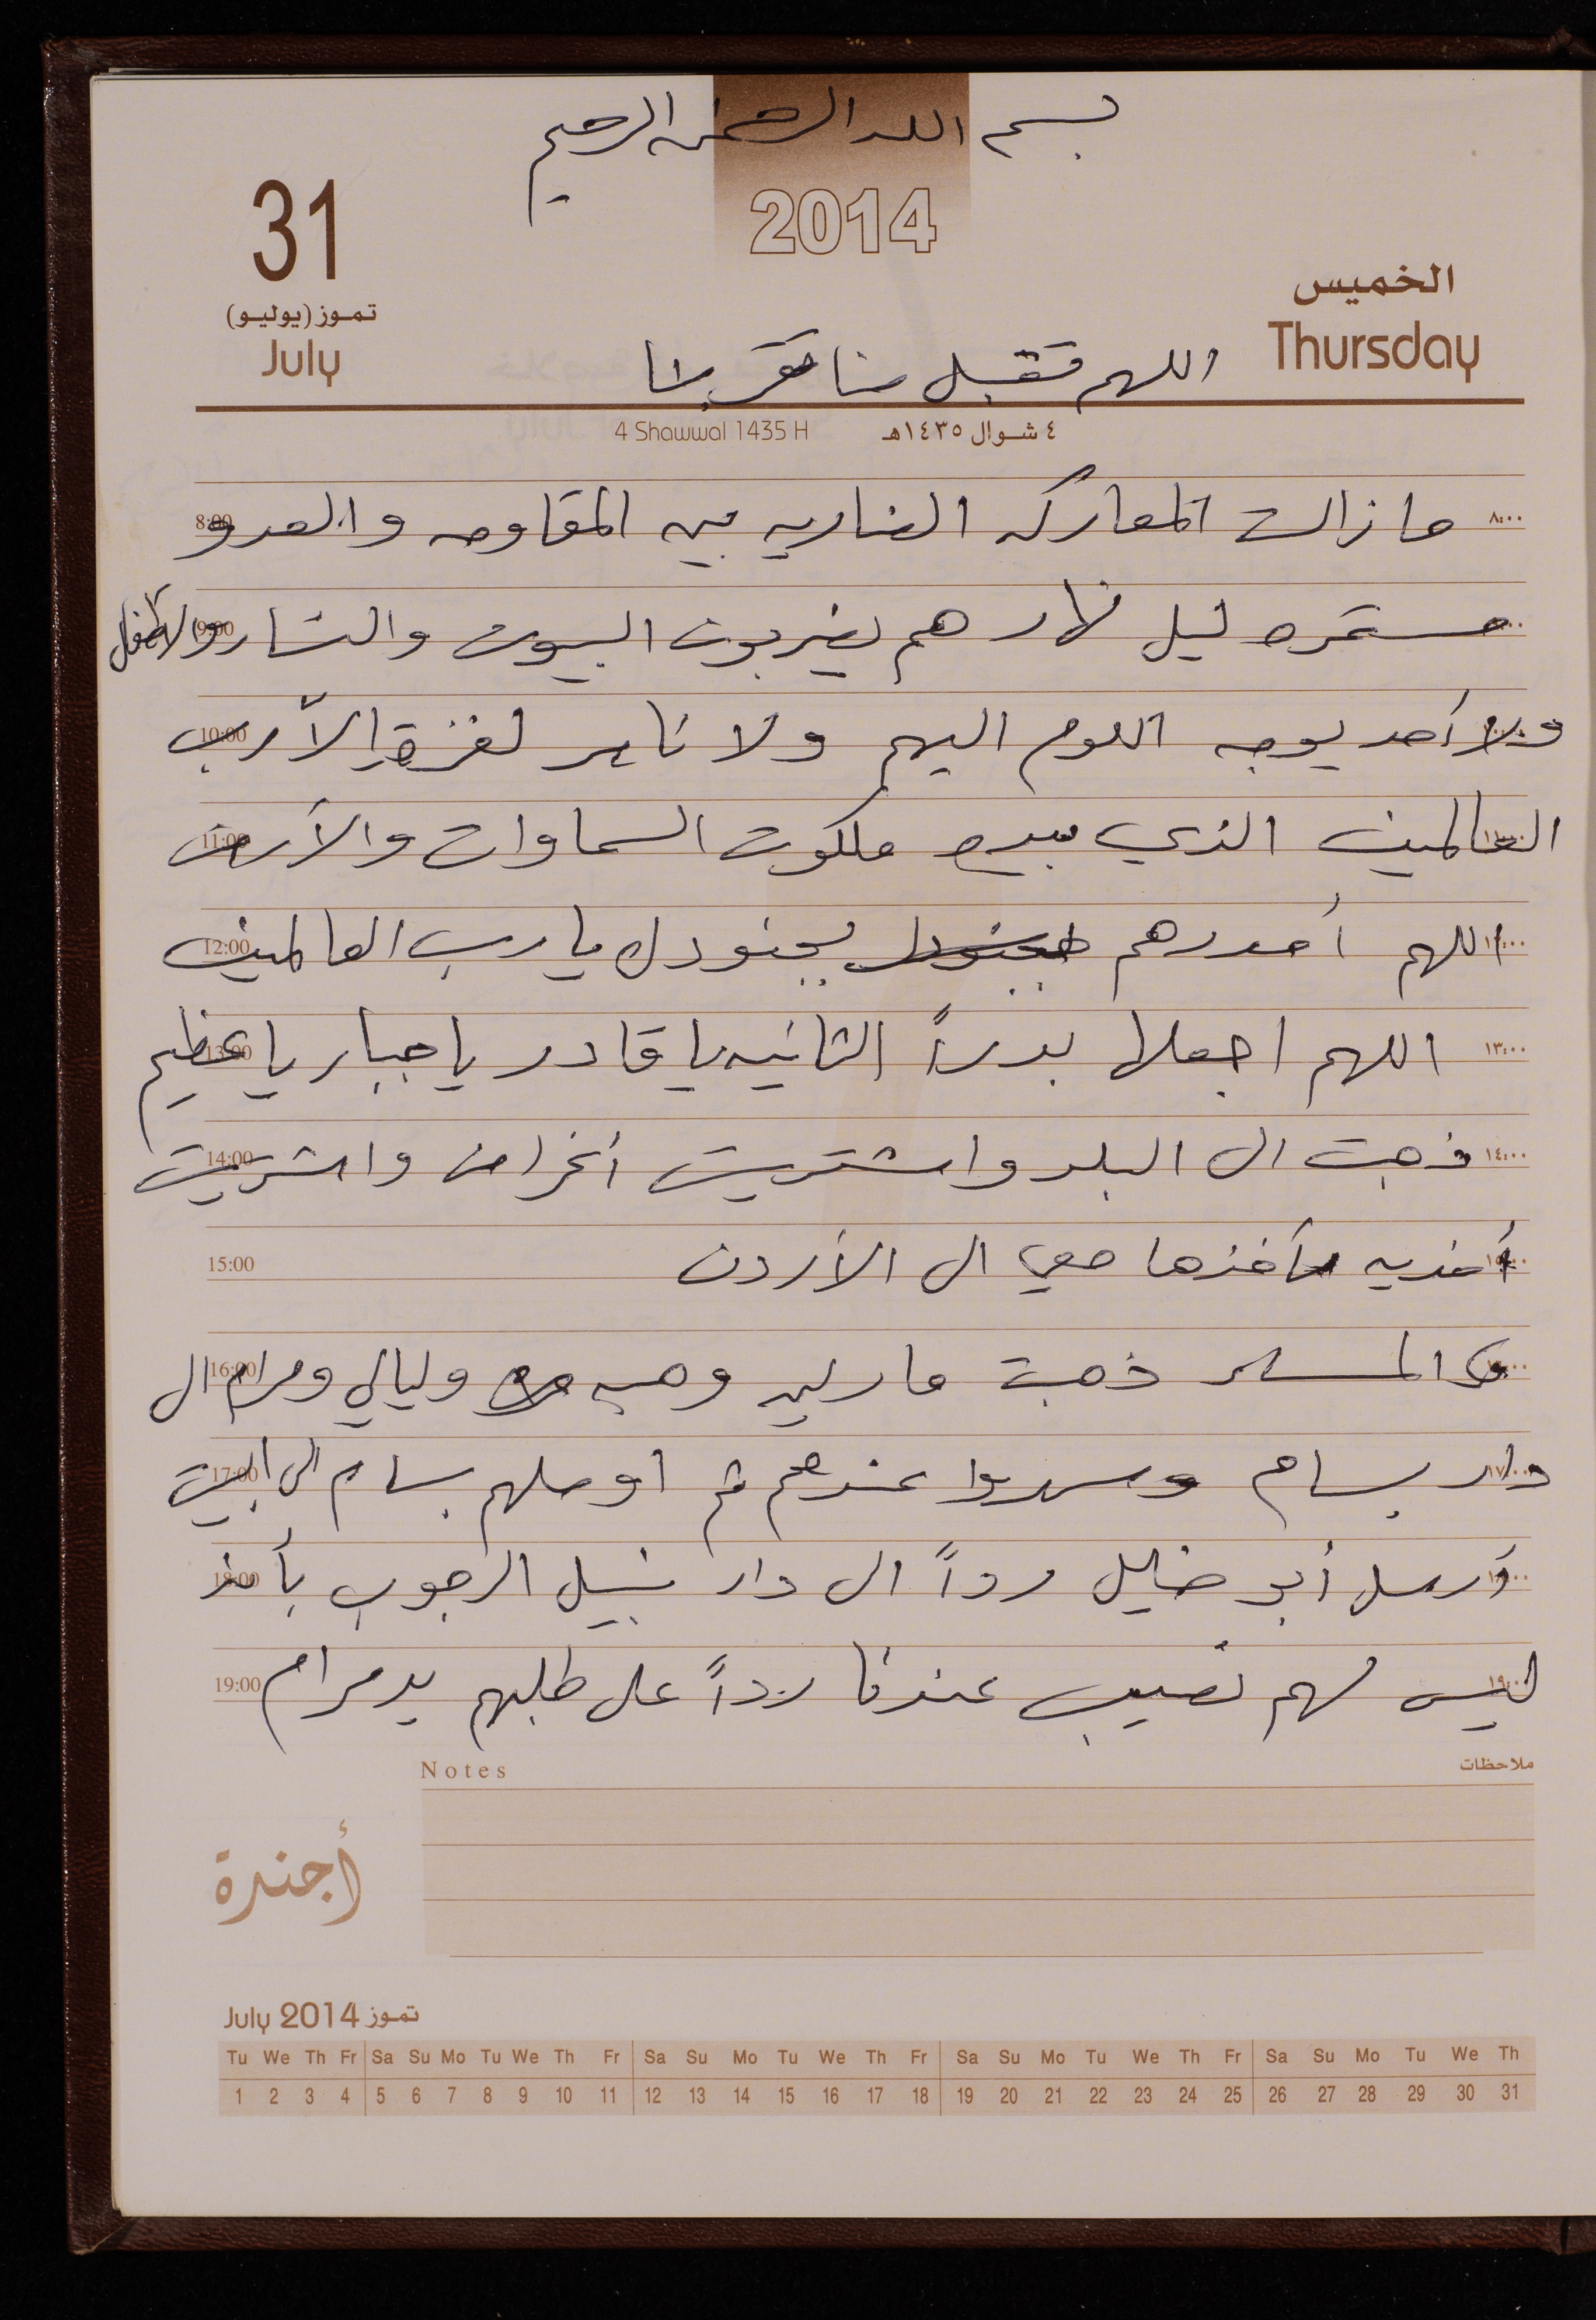 بسم الله الرحمن الرحيم
2014
31
تموز (يوليو)
July
الخميس
Thursday
اللهم تقبل منا
4 Shawwal 1435 H ٤ شوال ١٤٣٥هـ
8:00 ما زالت المعارك الضاريه بين المقاومه والعدو ٨:٠٠
9:00 مستمره ليل نهار هم يضربون البيوت والنساء والاطفال
10:00 ولا أحد يوجه اللوم اليهم ولا ناصر لغزة إلا رب
11:00 العالمين الذي بيده ملكوت السماوات والأرض
12:00 اللهم أمددهم بجنودك يا رب العالمين
13:00 اللهم اجعلها بدراً الثانيه يا قادر يا جبار يا عظيم ١٣:٠٠
14:00 ذهبت الى البلد واشتريت أغراض واشتريت ١٤:٠٠
15:00 أحذيه سآخذها معي الى الأردن
16:00 المساء ذهبت مارلين وهبه وليالي ومرام الى
17:00 دار بسام وسهروا عندهم ثم اوصلهم بسام الى البيت
18:00 أرسل أبو خليل رداً الى دار نبيل الرجوب بأنه
19:00 ليس لهم نصيب عندنا رداً على طلبهم يد مرام
Notes ملاحظات
أجندة
July 2014 تموز
Tu We Th Fr Sa Su Mo Tu We Th Fr Sa Su Mo Tu We Th Fr Sa Su Mo Tu We Th Fr Sa Su Mo Tu We Th
1 2 3 4 5 6 7 8 9 10 11 12 13 14 15 16 17 18 19 20 21 22 23 24 25 26 27 28 29 30 31